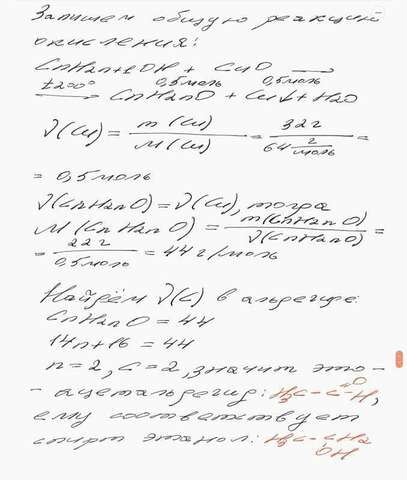 Запишем общую реакцию
окисления:
CnH2n+1OH + CuO ⟶
0,5моль 0,5моль
t200° ⟶ CnH2nO + Cu↓ + H2O
ν(Cu) = m(Cu) / M(Cu) = 32г / 64 г/моль =
= 0,5моль
ν(CnH2nO) = ν(Cu), тогда
M(CnH2nO) = m(CnH2nO) / ν(CnH2nO) =
= 22г / 0,5моль = 44г/моль
Найдём ν(C) в альдегиде:
CnH2nO = 44
14n+16 = 44
n=2, C=2, значит это-
- ацетальдегид: H3C-C=O-H,
ему соответствует
спирт этанол: H3C-CH2
OH